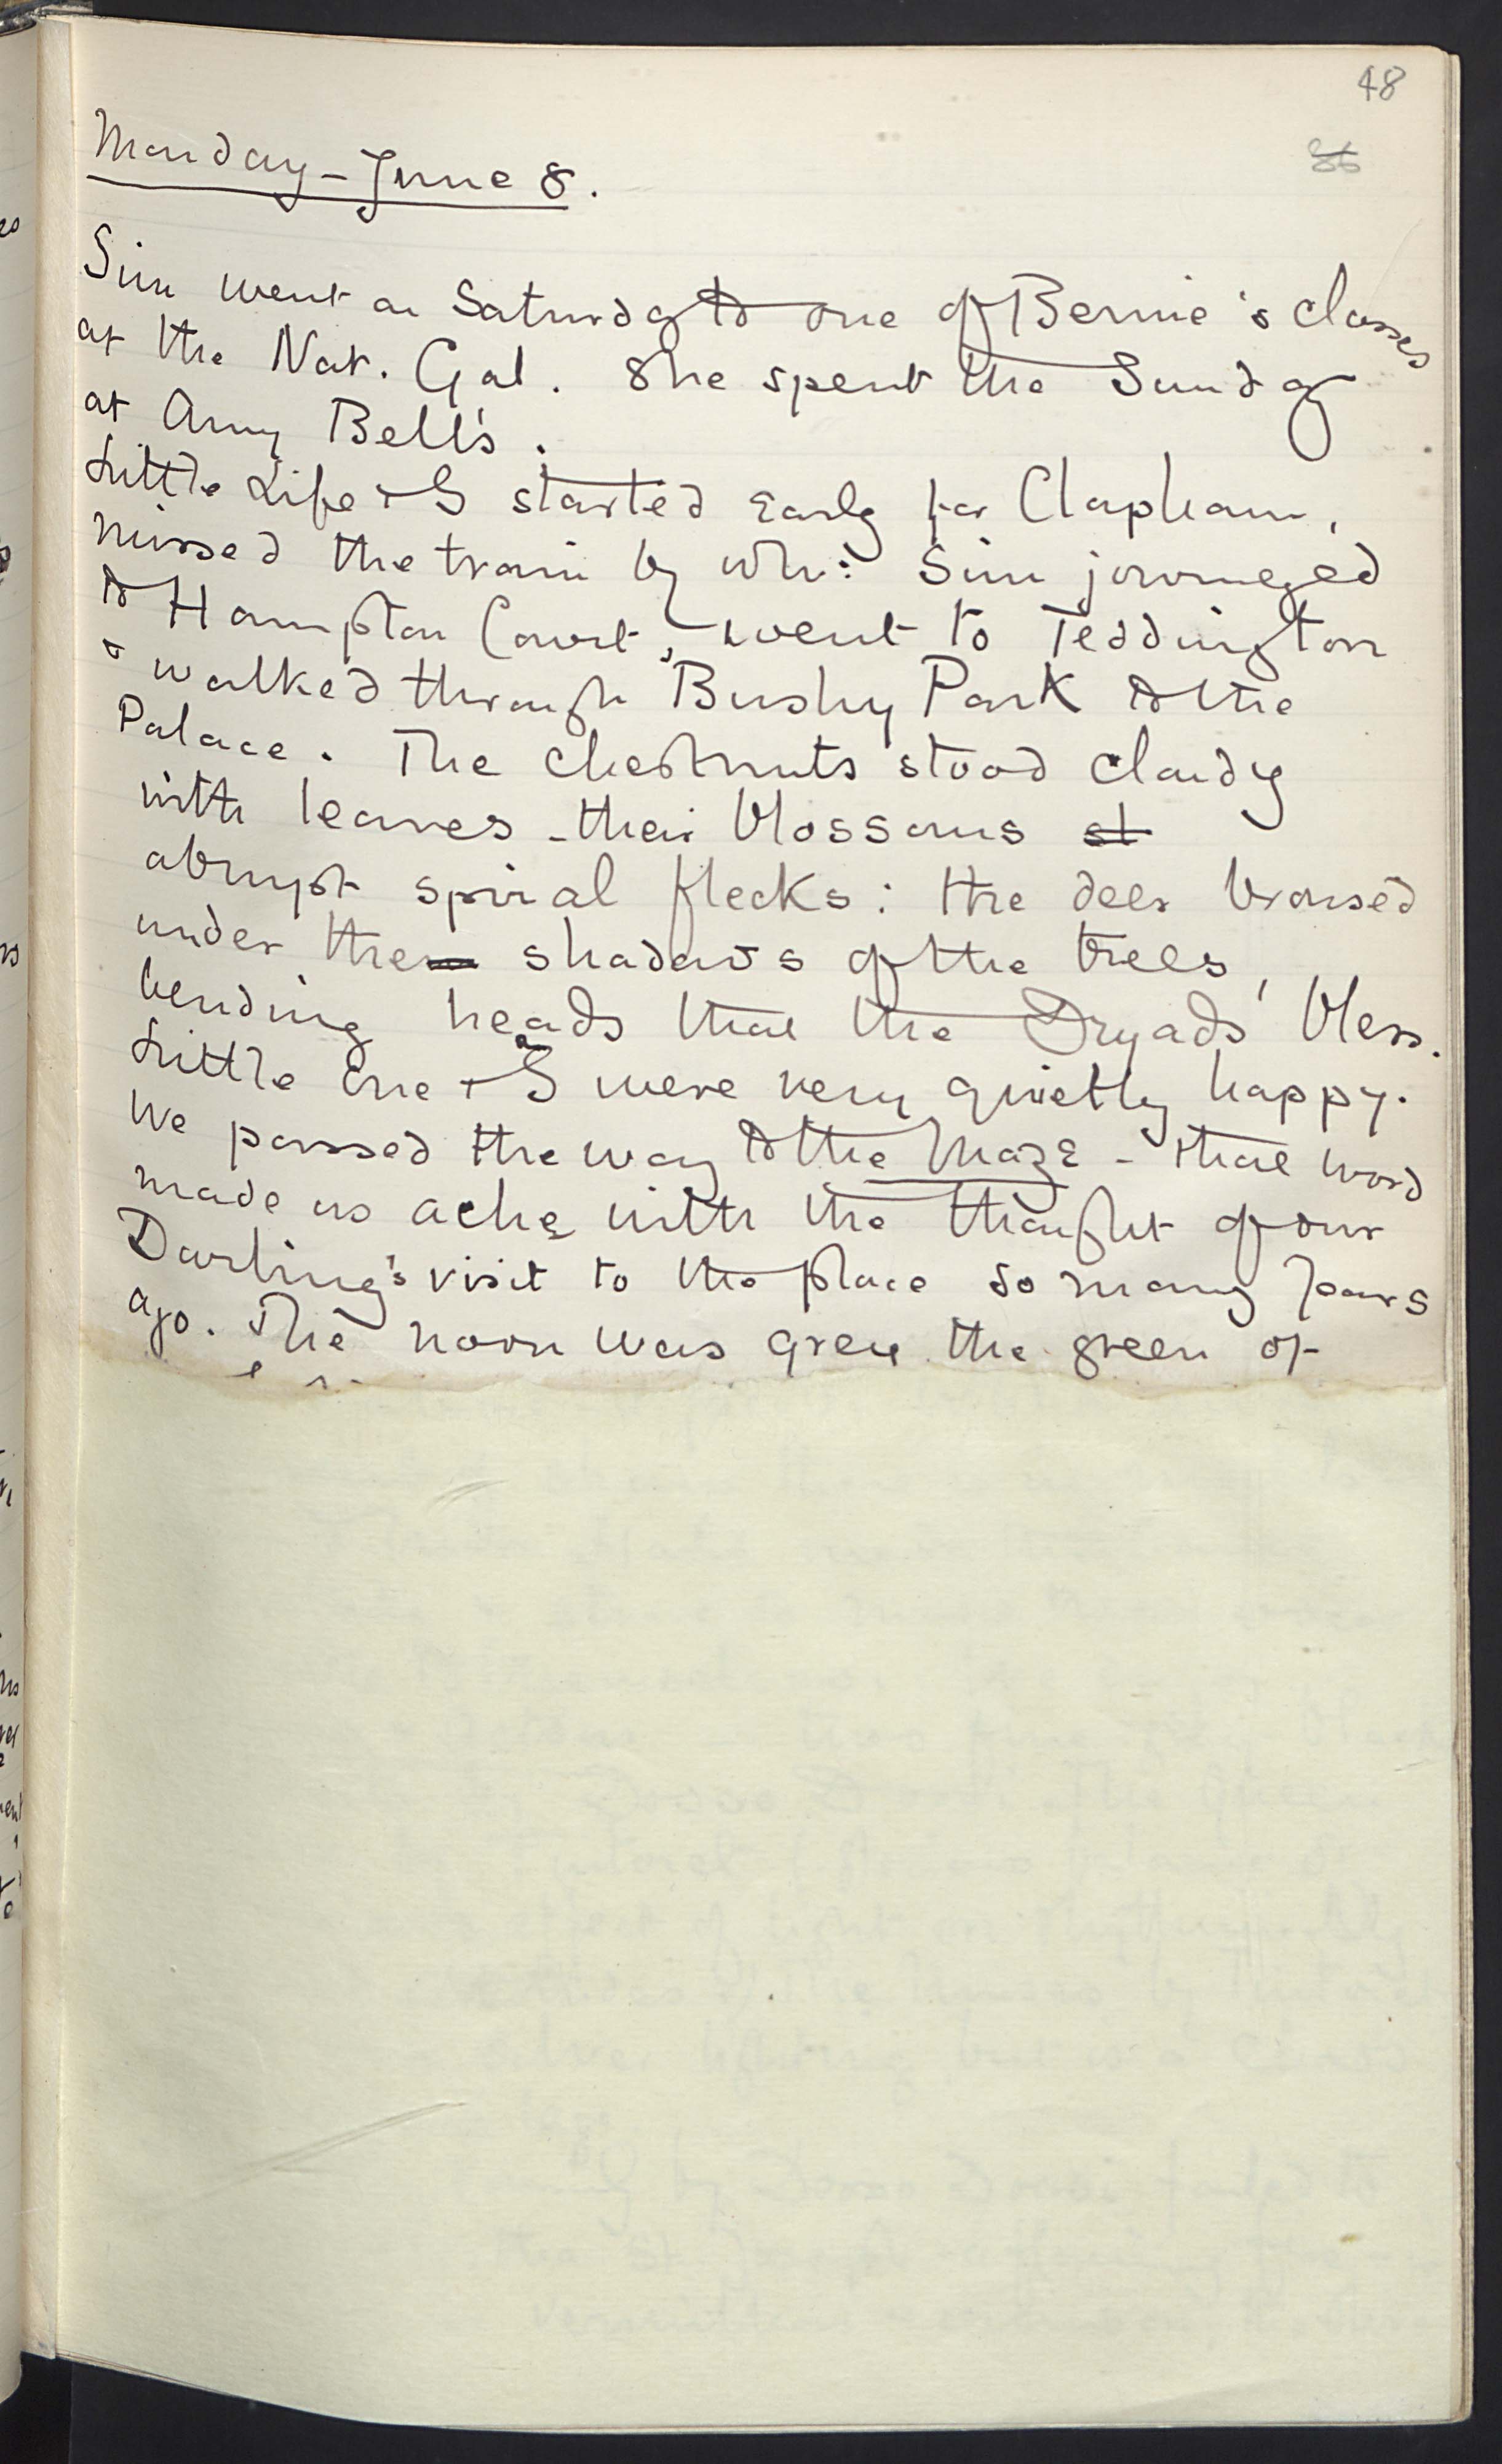 48
Monday – June 8.
Sim went on Saturday to one of Bernie's classes
at the Nat. Gal. She spent the Sunday
at Amy Bell's.
Little Life & I started early for Clapham,
missed the train by wh: Sim journeyed
to Hampton Court, went to Teddington
& walked through Bushy Park to the
Palace. The chestnuts stood cloudy
with leaves – their blossoms st
abrupt spiral flecks: the deer browsed
under the shadows of the trees,
bending heads that the Dryads bless.
Little One & I were very quietly happy.
We passed the way to the Maze – that word
made us ache with the thought of our
Darling's visit to the place so many years
ago. The noon was grey the green of